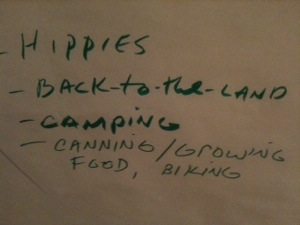 - HIPPIES
- BACK-to-the-LAND
- CAMPING
- CANNING/GROWING
FOOD, BIKING